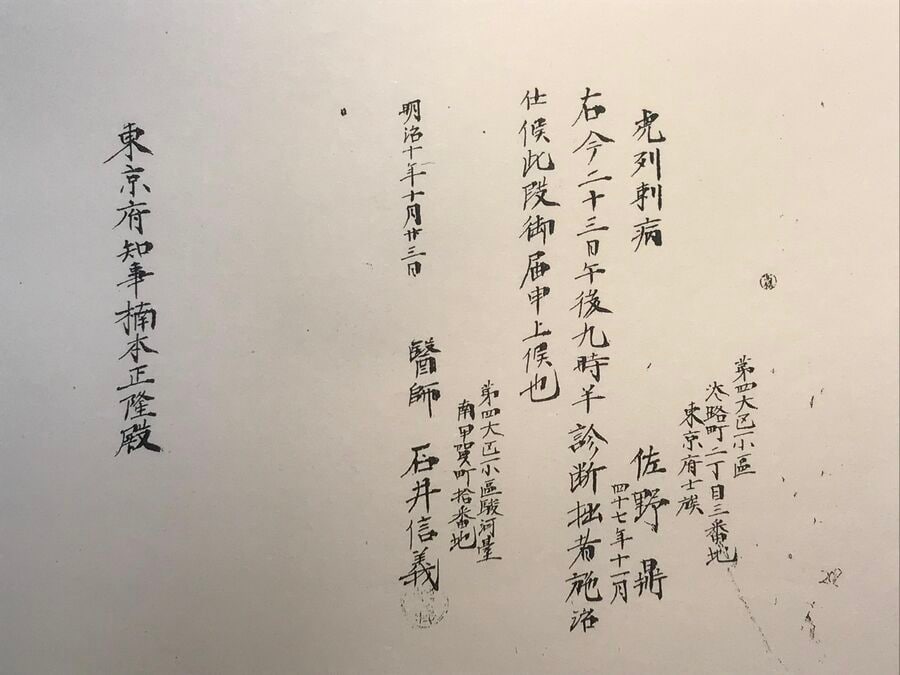 第四大区一小區
淡路町二丁目三番地
東京府士族
佐野鼎
四十七年十一月
虎列刺病
右今二十三日午後九時半診断拙者施治
仕候此段御届申上候也
第四大区一小區駿河臺
南甲賀町拾番地
明治十年十月廿三日
醫師 石井信義
東京府知事楠本正隆殿